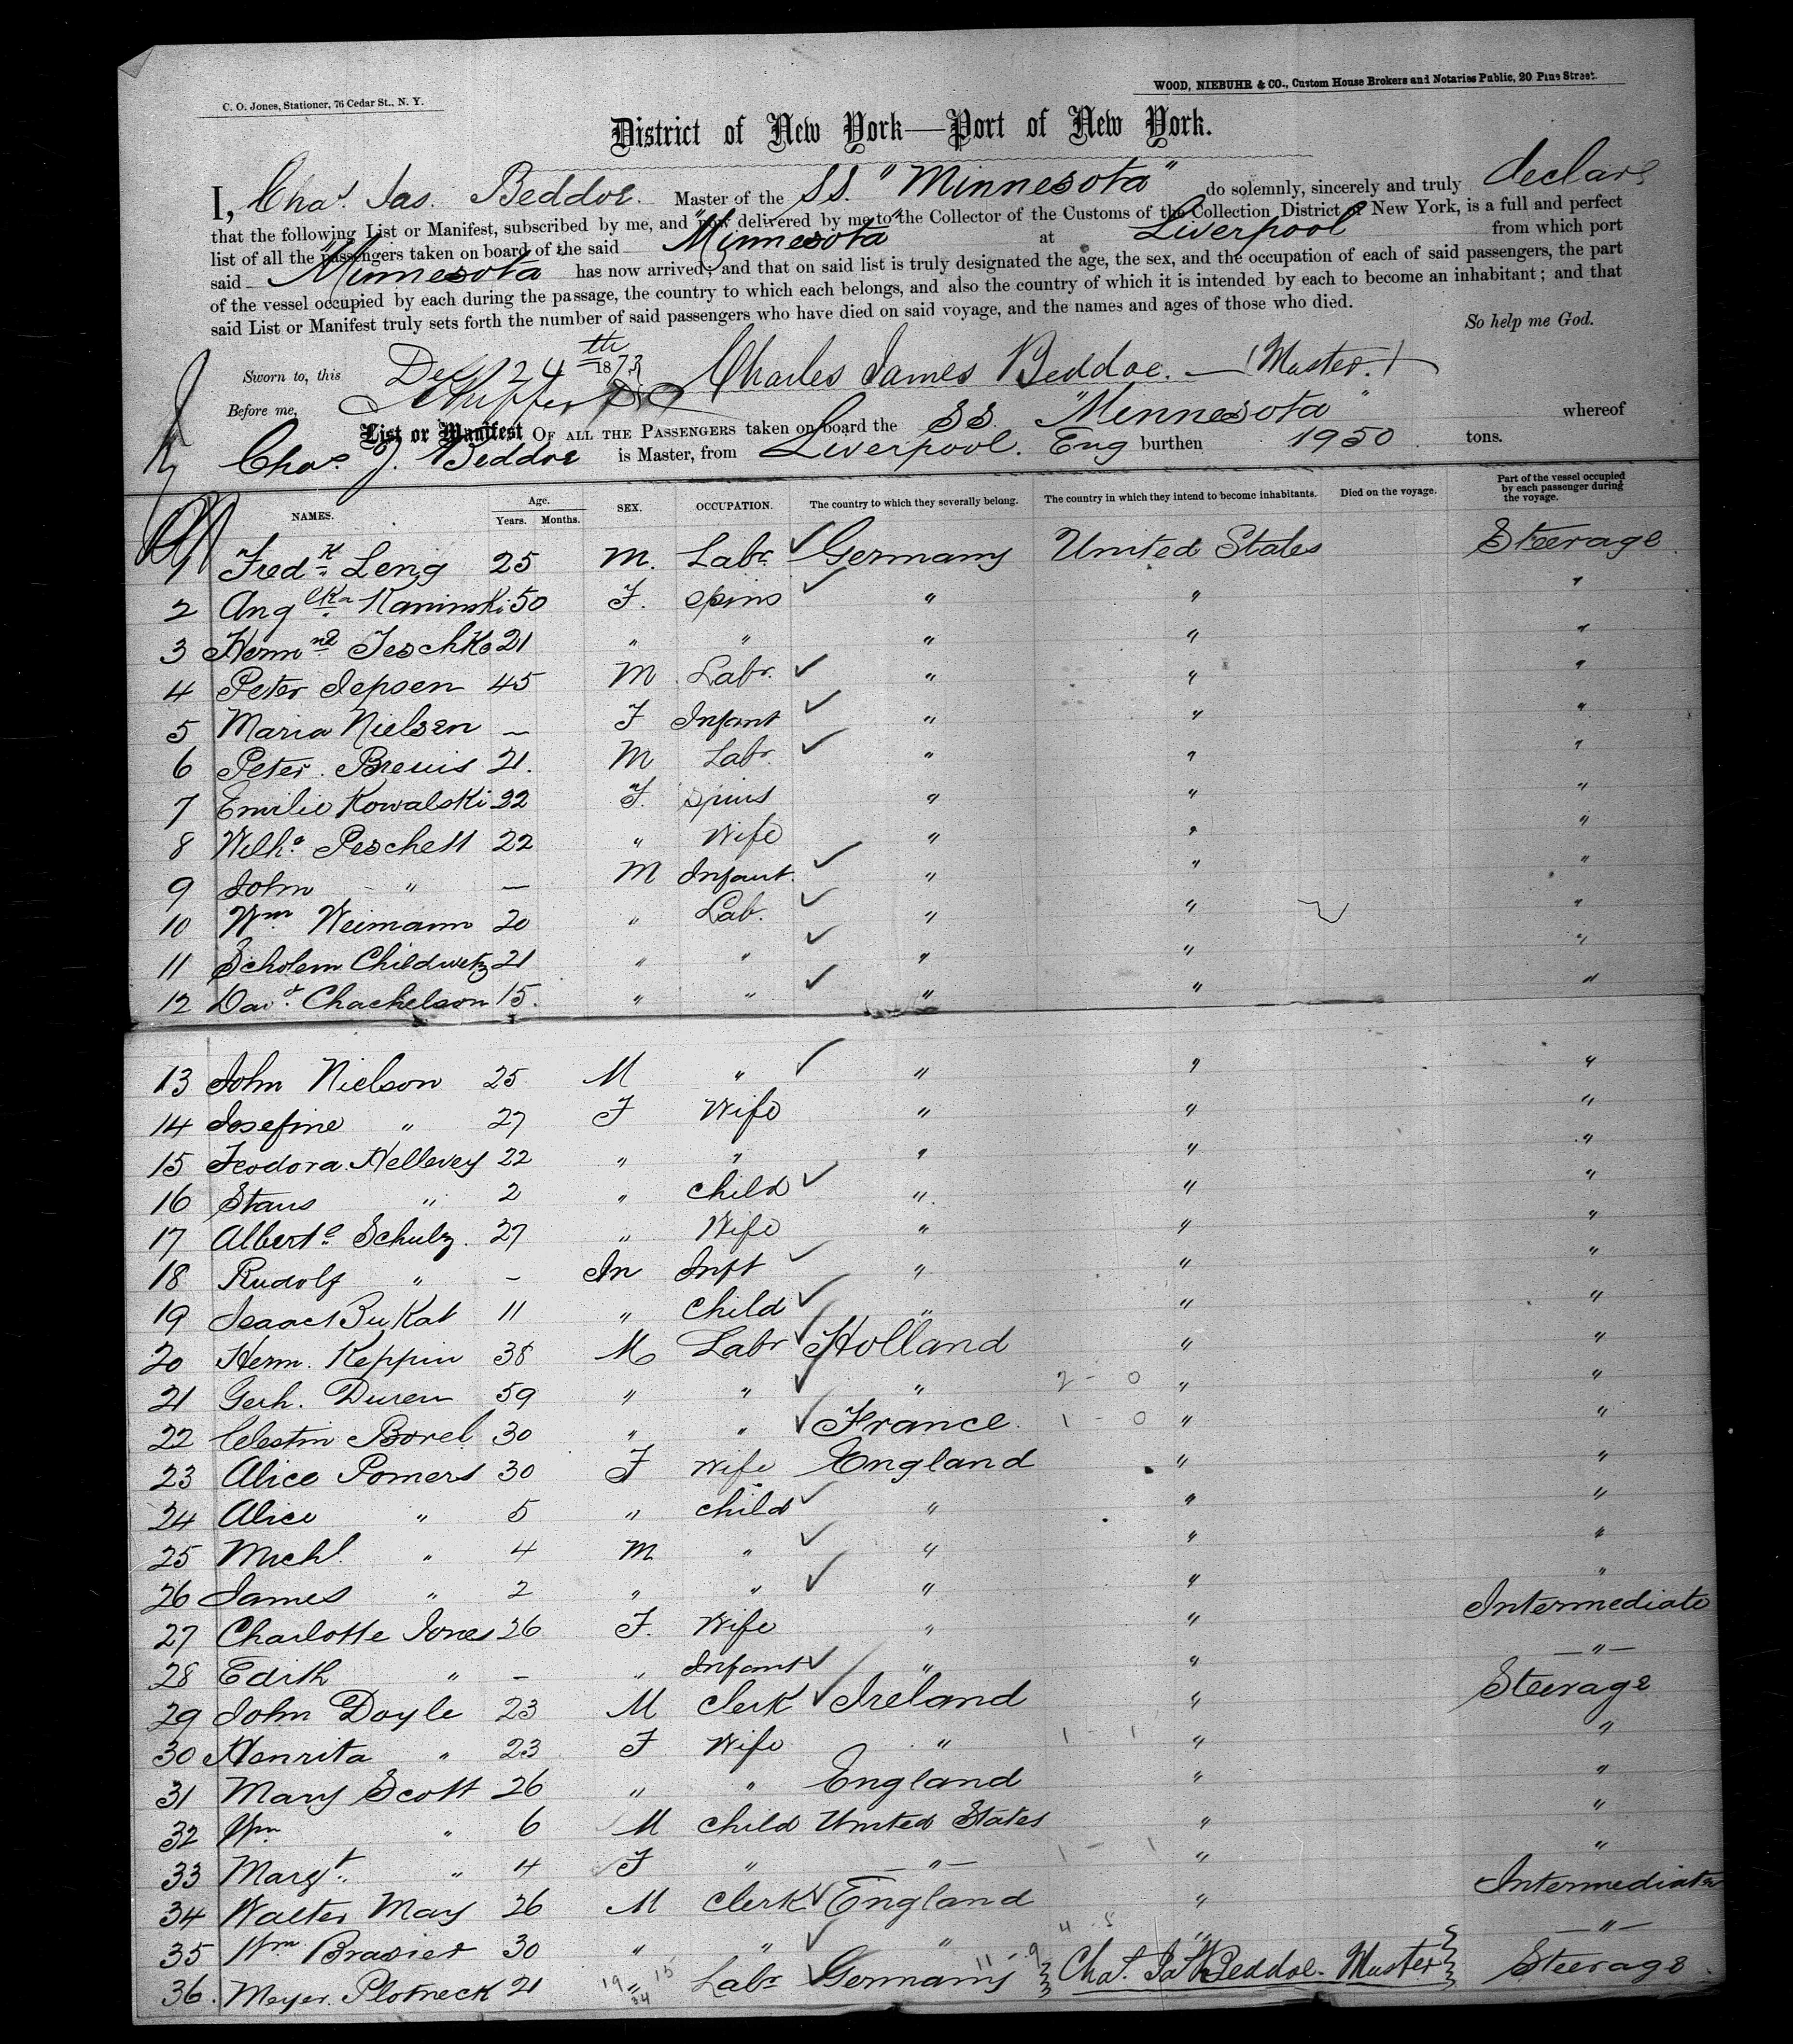 C. O. Jones, Stationer, 76 Cedar St., N. Y.
WOOD, NIEBUHR & CO., Custom House Brokers and Notaries Public, 20 Pine Street.
District of New York—Port of New York.
I, Chas. Jas. Beddoe. Master of the SS. "Minnesota" do solemnly, sincerely and truly declare
that the following List or Manifest, subscribed by me, and now delivered by me to the Collector of the Customs of the Collection District of New York, is a full and perfect
list of all the passengers taken on board of the said "Minnesota" at Liverpool from which port
said "Minnesota" has now arrived; and that on said list is truly designated the age, the sex, and the occupation of each of said passengers, the part
of the vessel occupied by each during the passage, the country to which each belongs, and also the country of which it is intended by each to become an inhabitant; and that
said List or Manifest truly sets forth the number of said passengers who have died on said voyage, and the names and ages of those who died.
So help me God.
Sworn to, this Dec 24th 1873 Charles James Beddoe. — (Master.)
Before me,
List or Manifest OF ALL THE PASSENGERS taken on board the SS. "Minnesota" whereof
Chas. J. Beddoe is Master, from Liverpool. Eng burthen 1950 tons.
NAMES. Age. Years. Months. SEX. OCCUPATION. The country to which they severally belong. The country in which they intend to become inhabitants. Died on the voyage. Part of the vessel occupied by each passenger during the voyage.
1 Fredk Leng 25 M. Labr. Germany United States Steerage
2 Angelka Kaninski 50 F. Spins " " "
3 Hermne Jeschke 21 " " " " "
4 Peter Jepsen 45 M Labr. " " "
5 Maria Nielsen — F Infant " " "
6 Peter. Breuis 21. M Labr. " " "
7 Emilie Kowalski 22 F. Spins " " "
8 Wilha Peschell 22 " Wife " " "
9 John " — M Infant. " " "
10 Wm. Weimann 20 " Lab. " " "
11 Scholem Childwetz 21 " " " " "
12 Davd. Chackelson 15. " " " " "
13 John Nielson 25 M " " " "
14 Josefine " 27 F Wife " " "
15 Feodora Hellevey 22 " " " " "
16 Staus " 2 " Child " " "
17 Alberte Schulz. 27 " Wife " " "
18 Rudolf " - In Inft " " "
19 Isaac Bukat 11 " Child " " "
20 Herm. Keppin 38 M Labr Holland " "
21 Gerh. Duren 59 " " " 2 - 0 " "
22 Celestin Borel 30 " " France. 1 - 0 " "
23 Alice Pomers 30 F Wife England " "
24 Alice " 5 " Child " " "
25 Michl. " 4 M " " " "
26 James " 2 " " " " "
27 Charlotte Jones 26 F. Wife " " Intermediate
28 Edith " - " Infant " " — " —
29 John Doyle 23 M Clerk Ireland " Steerage
30 Henrita " 23 F Wife " 1 - 1 " "
31 Mary Scott 26 " " England " "
32 Wm " 6 M Child United States " "
33 Margt. " 4 F " — " — 1 - 1 " "
34 Walter May 26 M Clerk England " Intermediate
35 Wm Brasier 30 " " " 4 - 5 " — " —
36. Meyer Plotneck 21 19 = 15 34 Labr Germany 11 - 9 Chas. Jas Beddoe. Master Steerage